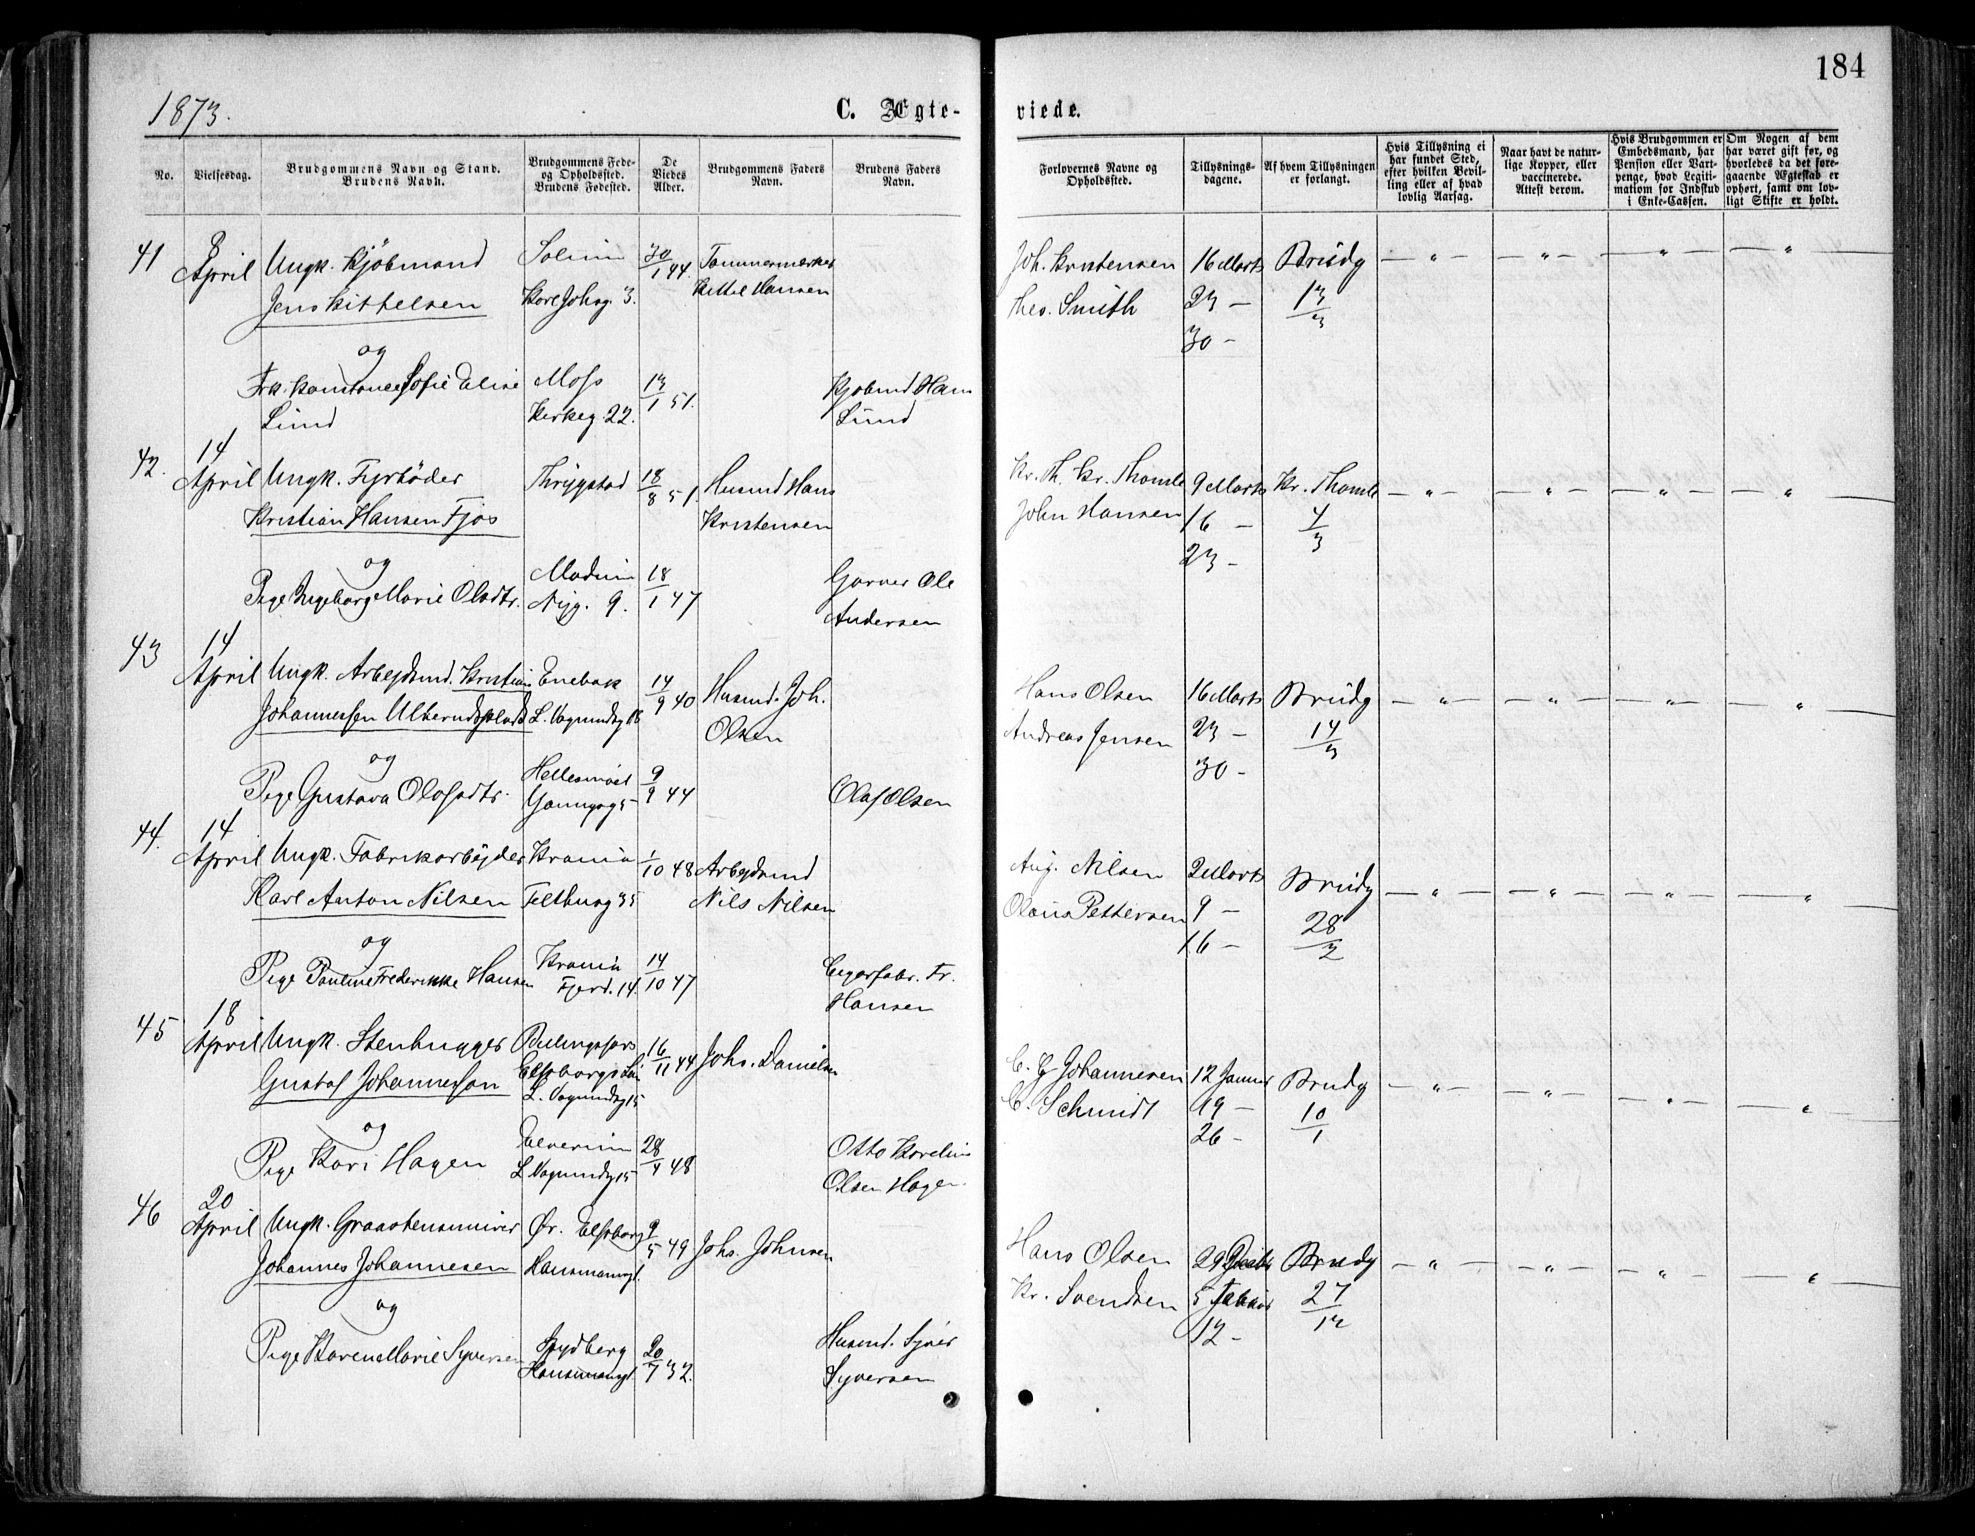 184
1873.
C. Ægte-
viede.
No.
Vielsesdag.
Brudgommens Navn og Stand.
Brudens Navn.
Brudgommens Føde-
og Opholdssted.
Brudens Fødested.
De
Viedes
Alder.
Brudgommens Faders
Navn.
Brudens Faders
Navn.
Forlovernes Navne og
Opholdssted.
Tillysnings-
dagene.
Af hvem Tillysningen
er forlangt.
Hvis Tillysning ei
har fundet Sted,
efter hvilken Bevil-
ling eller af hvad
lovlig Aarsag.
Naar havt de natur-
lige Kopper, eller
vaccinerede.
Attest derom.
Hvis Brudgommen er
Embedsmand, har
Pension eller Vart-
penge, hvad Legiti-
mation for Indskud
i Enke-Cassen.
Om Nogen af dem
har været gift før, og
hvorledes da det fore-
gaaende Ægteskab er
ophørt, samt om lov-
ligt Skifte er holdt.
41 8 April Ungk. Kjöbmand Solum 30/1 44 Tømmermærker Joh. Kristensen 16 Marts Brudg — „ — — „ — — „ — — „ —
Jens Kittelsen Karl Johsg. 3. Kittil Hansen Thes. Smith 23 — 13/3
og 30 -
Frk. Konstance Sofie Elise Moss 13/1 51. Kjøbmd Hans
Lund Kirkeg. 22. Lund
42. 14 April Ungk. Fyrbøder Thrygstad 18/8 51 Husmd Hans Kr. Th. Kr. Thomle 9 Marts Kr. Thomle — „ — — „ — — „ — — „ —
Kristian Hansen Fjøs Kristensen John Hansen 16 — 4/3
og 23 -
Pige Ingeborg Marie Olsdtr. Modum 18/1 47 Garver Ole
Nyg. 9. Andersen
43 14 April Ungk. Arbejdsmd. Kristian Enebak 14/9 40 Husmd. Joh. Hans Olsen 16 Marts Brudg — „ — — „ — — „ — — „ —
Johannessen L. Vognmdsg 18 Olsen Andreas Jensen 23 — 14/3
og 30 -
Pige Gustava Olofsdtr. 9/9 44 Olof Olsen
44. 14 April Ungk. Fabrikarbejder Krania 1/10 48 Arbejdsmd Aug. Nilsen 2 Marts Brudg — „ — — „ — — „ — — „ —
Karl Anton Nilsen Filthusg 35 Nils Nilsen Olaus Pettersen 9 — 28/2
og 16 —
Pige Pauline Frederikke Hansen Krania 14/10 47 Cigarfabr. Fr.
Fjerd. 14. Hansen
45 18 April Ungk. Stenhugger 16/11 44 Johs. Danielsen C. G Johannesen 12 Januar Brudg — „ — — „ — — „ — — „ —
Gustaf Johannesson Elfsborgs Län C. Schmidt 19 — 10/1
L. Vognmdsg 15 26 -
og
Pige Kari Hagen Elverum 28/4 48 Otto Karelius
L. Vognmdsg 15 Olsen Hagen
46 20 April Ungk. Graastensmurer Ør. Elfsborg 9/5 49 Johs. Johnsen Hans Olsen 29 Brudg — „ — — „ — — „ — — „ —
Johannes Johannesen Hansmannsgt. Kr. Svendsen 5 27/12
og 12 -
Pige Karen Marie Syversen Spydberg 20/7 32. Husmd. Syver
Hansmansgt. Syversen